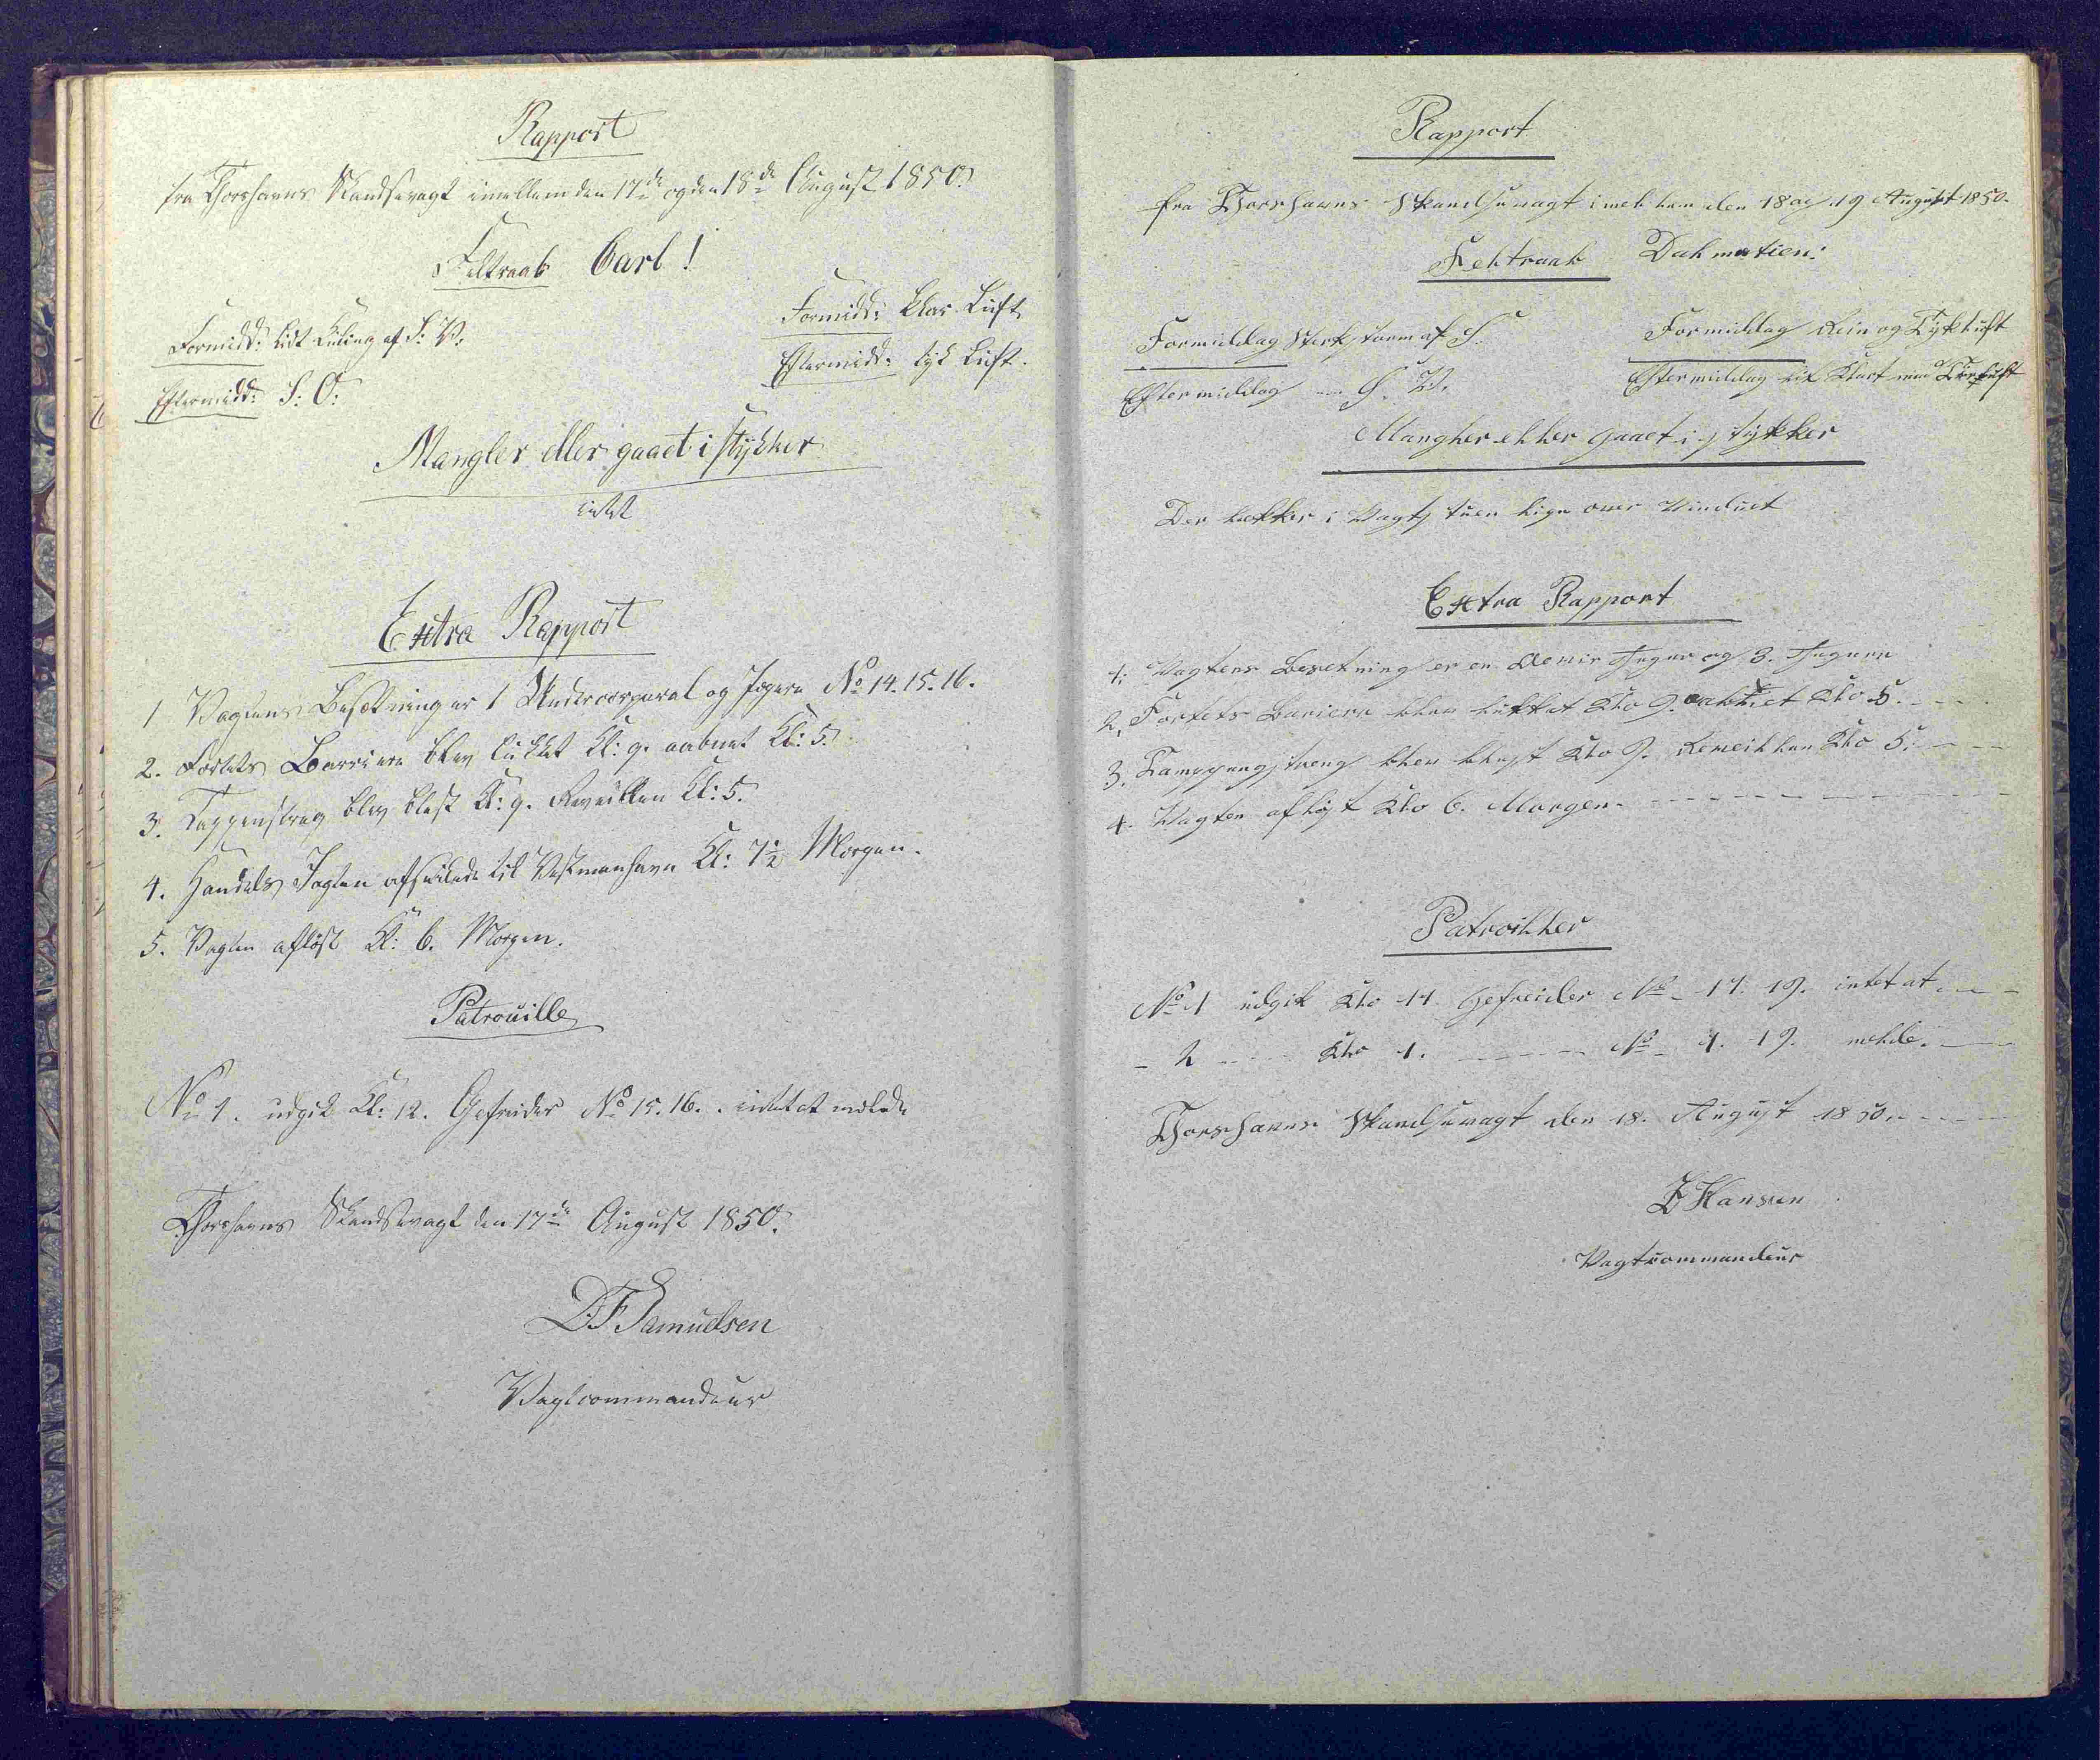 Rapport
fra Thorshavns Skandsevagt imellem den 17de og den 18de August 1850.
Feltraab Carl!
Formidd: lidt Kuling af S: V.
Formidd: klar Luft
Eftermidd: S: O:
Eftermidd: tyk Luft.
Mangler eller gaaet i stykker
intet
Extra Rapport
1 Vagtens Besætning er 1 Undercorporal og Jægere No 14. 15. 16.
2. Fortets Barriere blev lukket Kl: 9. aabnet Kl: 5.
3. Tappenstreg blev blæst Kl: 9. Reveillen Kl: 5.
4. Handels Jagten afseilede til Vestmanhavn Kl: 7½ Morgen.
5. Vagten afløst Kl: 6. Morgen.
Patrouille
No 1. udgik Kl: 12. Gefreider No 15. 16. intet at melde
Thorshavns Skandsevagt den 17de August 1850.
DF Samuelsen
Vagtcommandeur
Rapport
fra Thorshavns Skandsevagt imellem den 18 og 19 August 1850.
Feltraab Dalmatien:
Formiddag Sterk storm af S.
Formiddag Rein og Tyk luft
Eftermiddag — S. V.
Eftermiddag lit Klart med luft
Mangler eller gaaet i stykker
Der lækker i Vagtstuen lige over Vinduet
Extra Rapport
1. Vagtens Besetning er en Jeger og 3. Jegere
2. Fortets Bariere blev lukket Klo 9. aabnet Klo 5.
3. Tampengstreng blev blæst Klo 9. Reveillen Klo 5.
4. Vagten afløst Klo 6. Morgen.
Patroiller
No 1 udgik Klo 11 Gefreider No 17. 19. intet at
- 2 — Klo 1. — No 1. 19. melde.
Thorshavns Skandsevagt den 18. August 1850.
Hansen
Vagtcommandeur